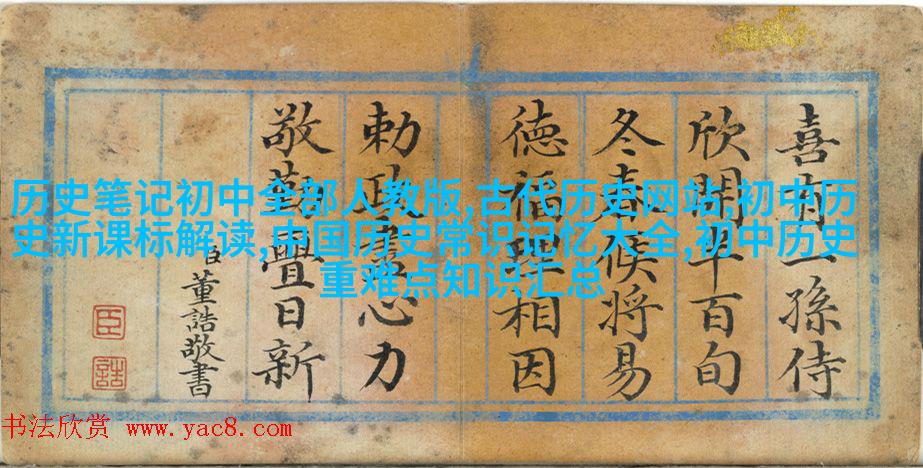 喜有一孫侍
欣開年百旬
冬春候將易
德福理相因
勅政盡心力
敬勤疊日新
臣董誥敬書
臣
誥
历史笔记初中全部人教版,古代历史网站,初中历
史新课标解读,中国历史常识记忆大全,初中历史
重难点知识汇总
书法欣赏 www.yac8.com